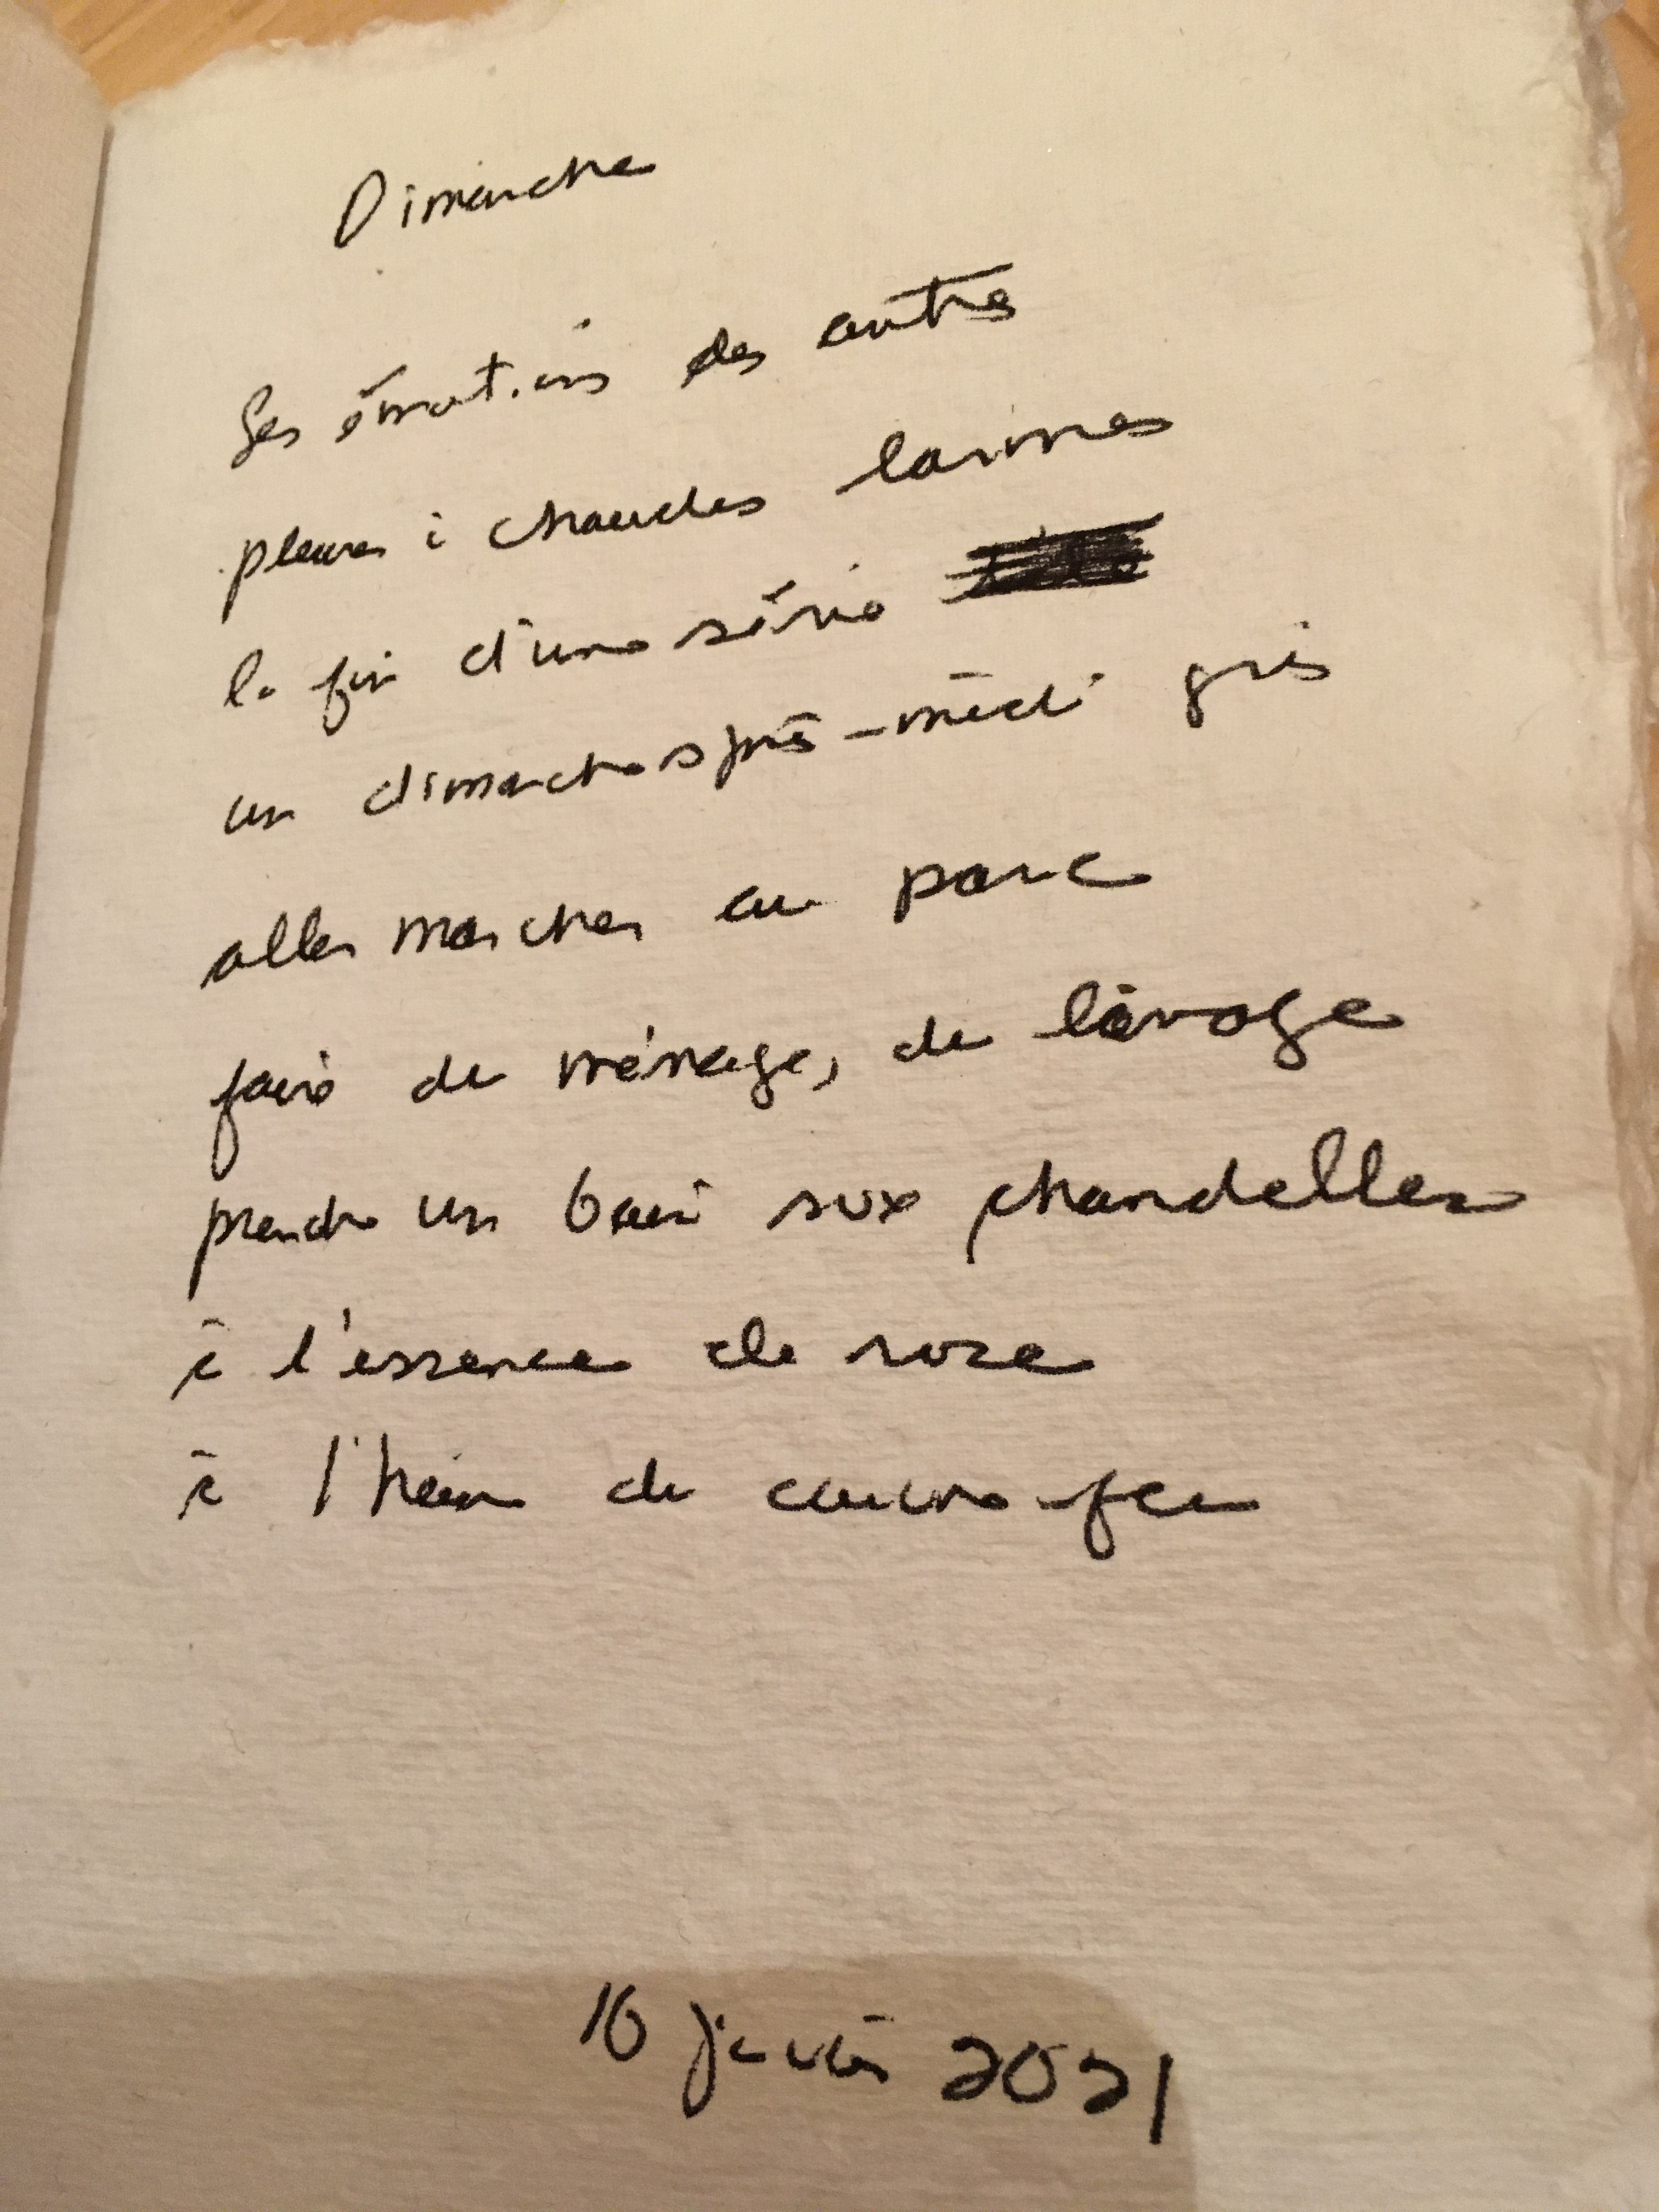 Dimanche
Les émotions des autres
pleurer à chaudes larmes
la fin d'une série
un dimanche après-midi gris
aller marcher au parc
faire du ménage, du lavage
prendre un bain aux chandelles
à l'essence de rose
à l'heure du couvre-feu
16 janvier 2021